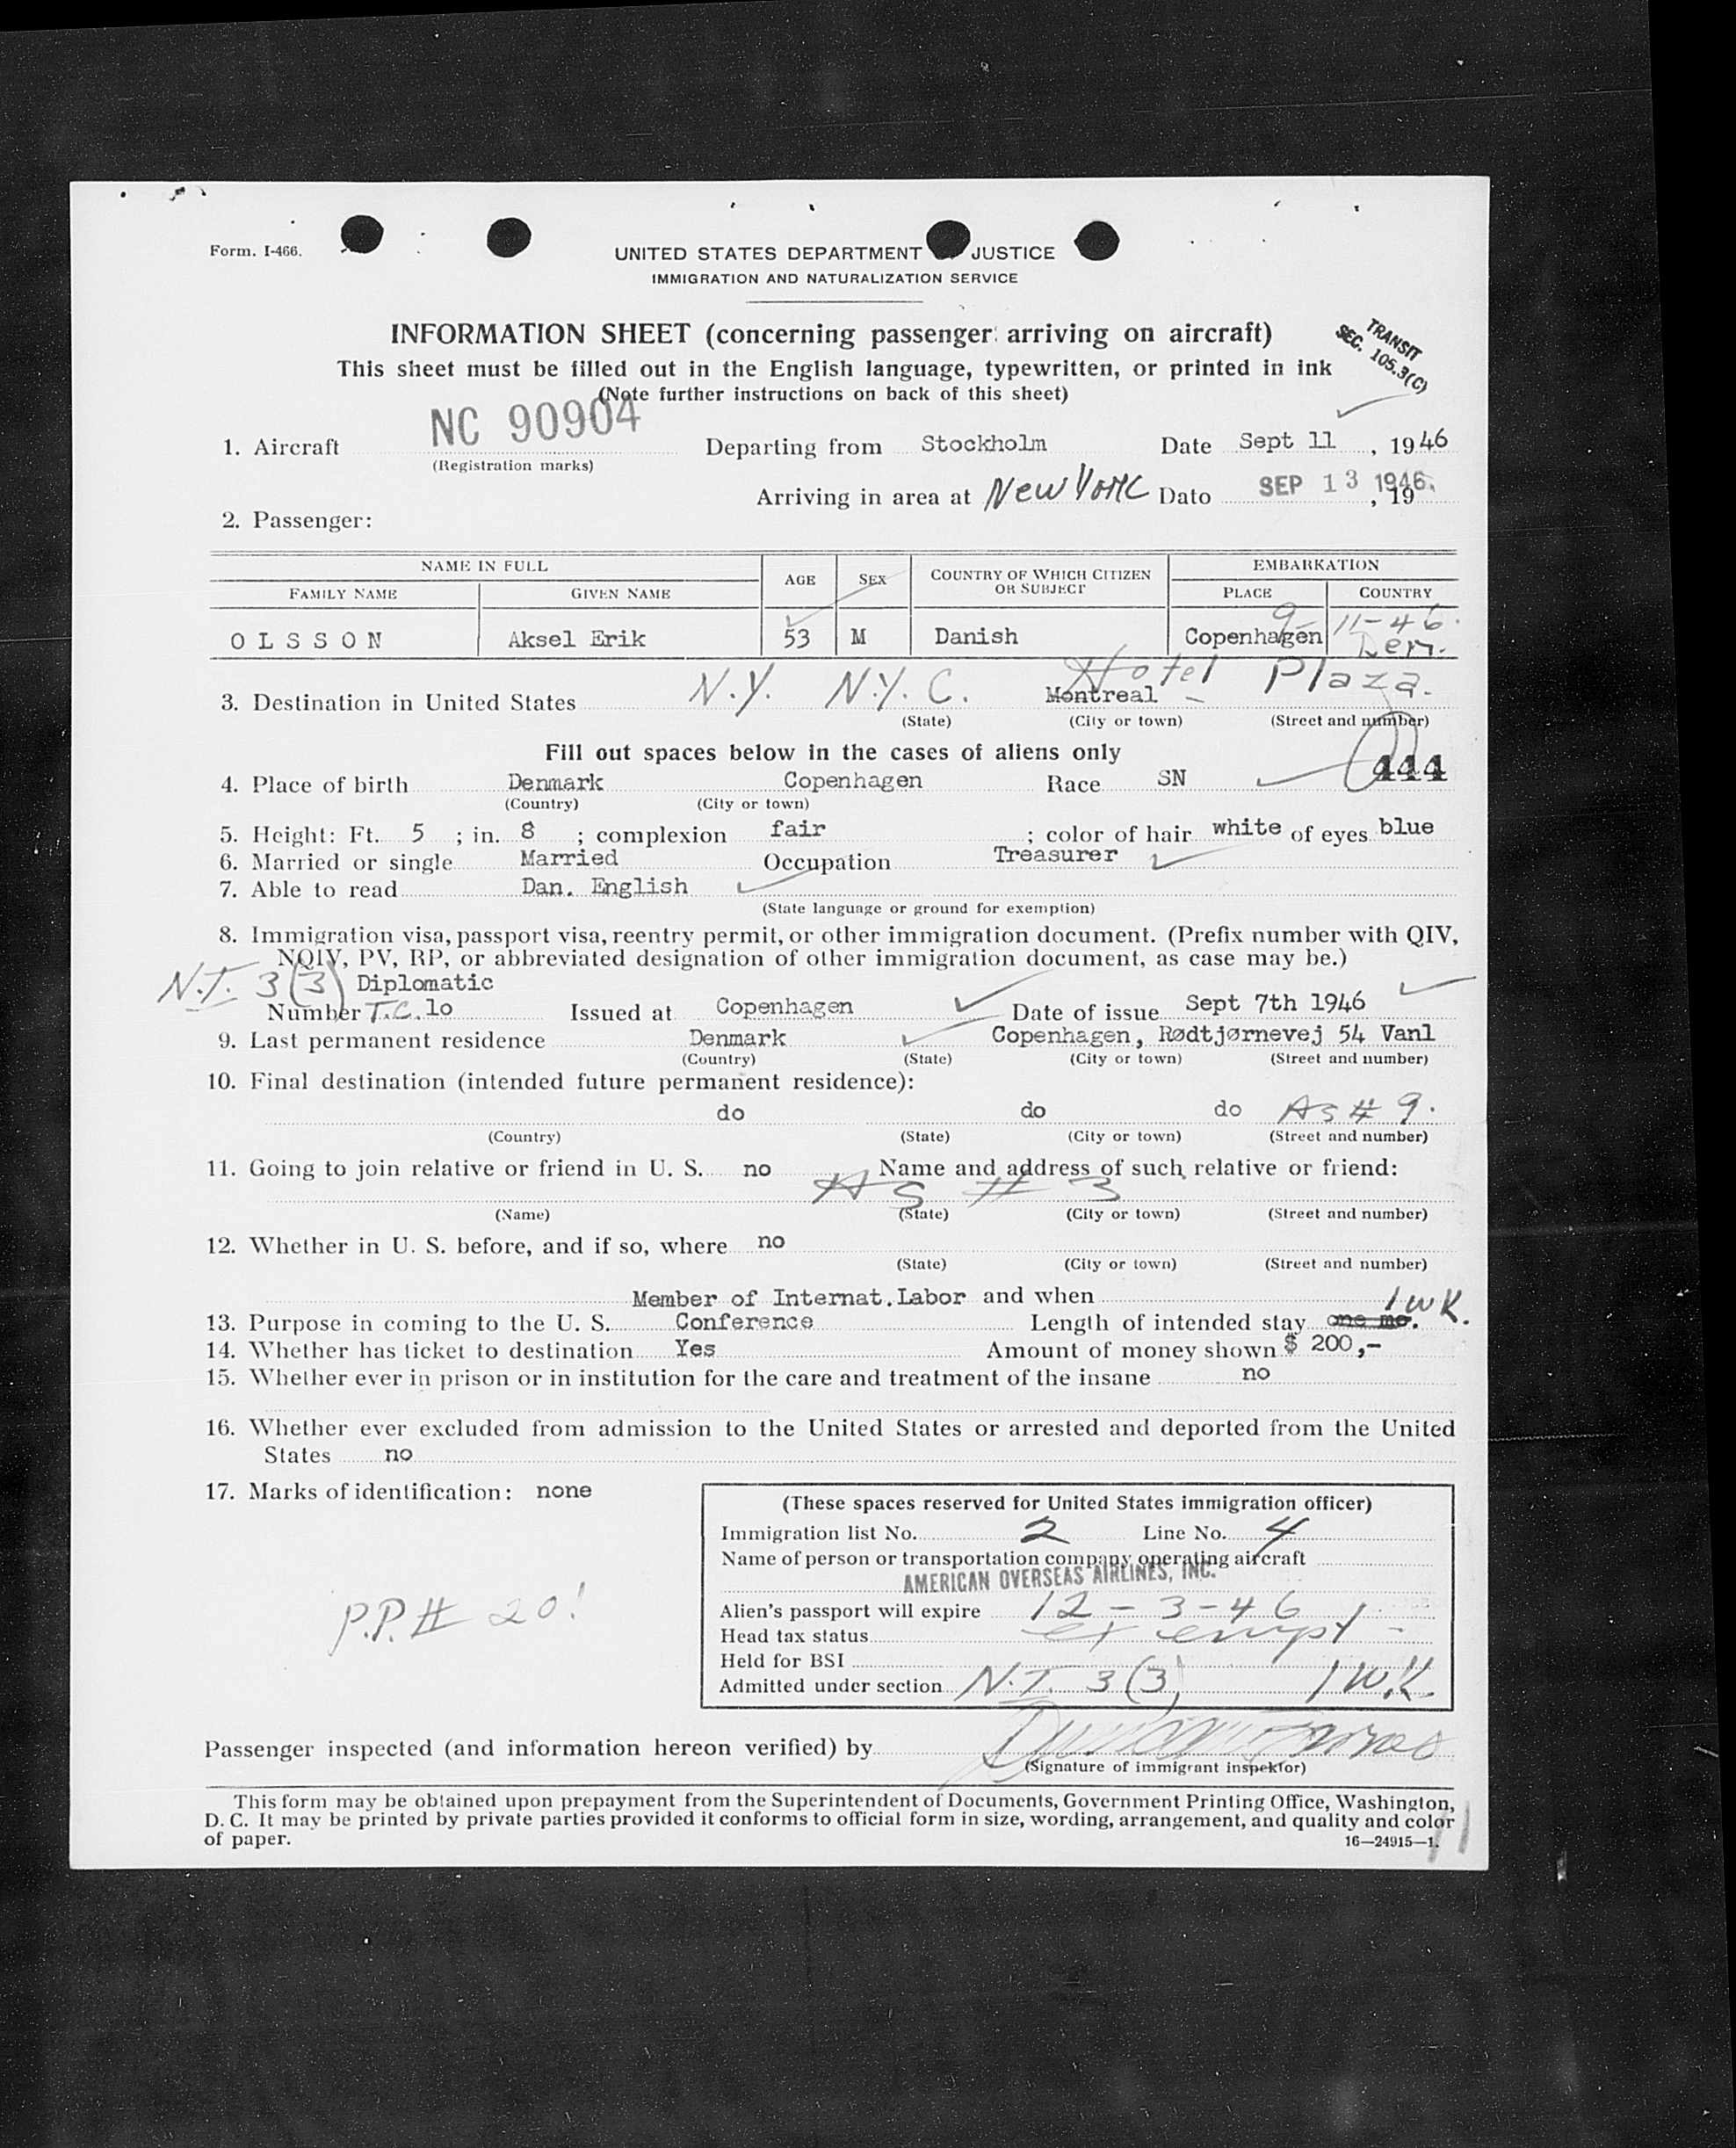 Form. I-466.
UNITED STATES DEPARTMENT JUSTICE
IMMIGRATION AND NATURALIZATION SERVICE
INFORMATION SHEET (concerning passenger arriving on aircraft)
TRANSIT
SEC. 105.3(C)
This sheet must be filled out in the English language, typewritten, or printed in ink
(Note further instructions on back of this sheet)
1. Aircraft NC 90904 Departing from Stockholm Date Sept 11, 1946
(Registration marks)
Arriving in area at New York Date SEP 13 1946, 19
2. Passenger:
NAME IN FULL AGE SEX COUNTRY OF WHICH CITIZEN OR SUBJECT EMBARKATION
FAMILY NAME GIVEN NAME PLACE COUNTRY
9-11-46.
OLSSON Aksel Erik 53 M Danish Copenhagen Den.
Hotel Plaza.
3. Destination in United States N.Y. N.Y.C. Montreal
(State) (City or town) (Street and number)
Fill out spaces below in the cases of aliens only
444
4. Place of birth Denmark Copenhagen Race SN
(Country) (City or town)
5. Height: Ft. 5 ; in. 8 ; complexion fair ; color of hair white of eyes blue
6. Married or single Married Occupation Treasurer
7. Able to read Dan. English
(State language or ground for exemption)
8. Immigration visa, passport visa, reentry permit, or other immigration document. (Prefix number with QIV,
NQIV, PV, RP, or abbreviated designation of other immigration document, as case may be.)
N.T. 3(3) Diplomatic
Number T.C. 10 Issued at Copenhagen Date of issue Sept 7th 1946
9. Last permanent residence Denmark Copenhagen, Rødtjørnevej 54 Vanl
(Country) (State) (City or town) (Street and number)
10. Final destination (intended future permanent residence):
do do do As # 9.
(Country) (State) (City or town) (Street and number)
11. Going to join relative or friend in U. S. no Name and address of such relative or friend:
As # 3
(Name) (State) (City or town) (Street and number)
12. Whether in U. S. before, and if so, where no
(State) (City or town) (Street and number)
Member of Internat.Labor and when
13. Purpose in coming to the U. S. Conference Length of intended stay one mo. 1 WK.
14. Whether has ticket to destination Yes Amount of money shown $ 200,-
15. Whether ever in prison or in institution for the care and treatment of the insane no
16. Whether ever excluded from admission to the United States or arrested and deported from the United
States no
17. Marks of identification: none
(These spaces reserved for United States immigration officer)
Immigration list No. 2 Line No. 4
Name of person or transportation company operating aircraft
AMERICAN OVERSEAS AIRLINES, INC.
P.P. # 20!
Alien's passport will expire 12-3-46
Head tax status exempt
Held for BSI
Admitted under section N.T. 3(3) 1 WK.
Passenger inspected (and information hereon verified) by
(Signature of immigrant inspektor)
This form may be obtained upon prepayment from the Superintendent of Documents, Government Printing Office, Washington,
D. C. It may be printed by private parties provided it conforms to official form in size, wording, arrangement, and quality and color
of paper. 16—24915—1.